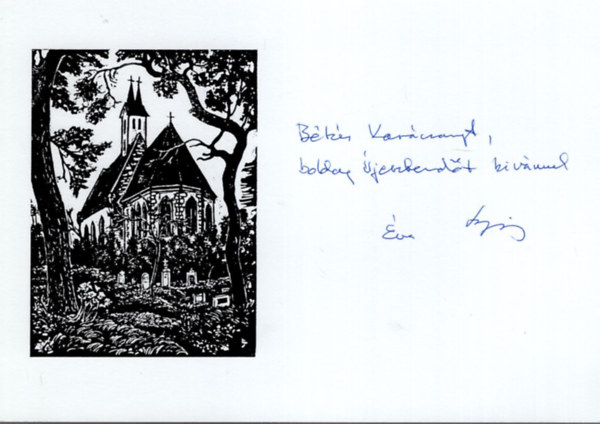 Békés Karácsonyt,
boldog Újesztendőt kivánnak
Éva